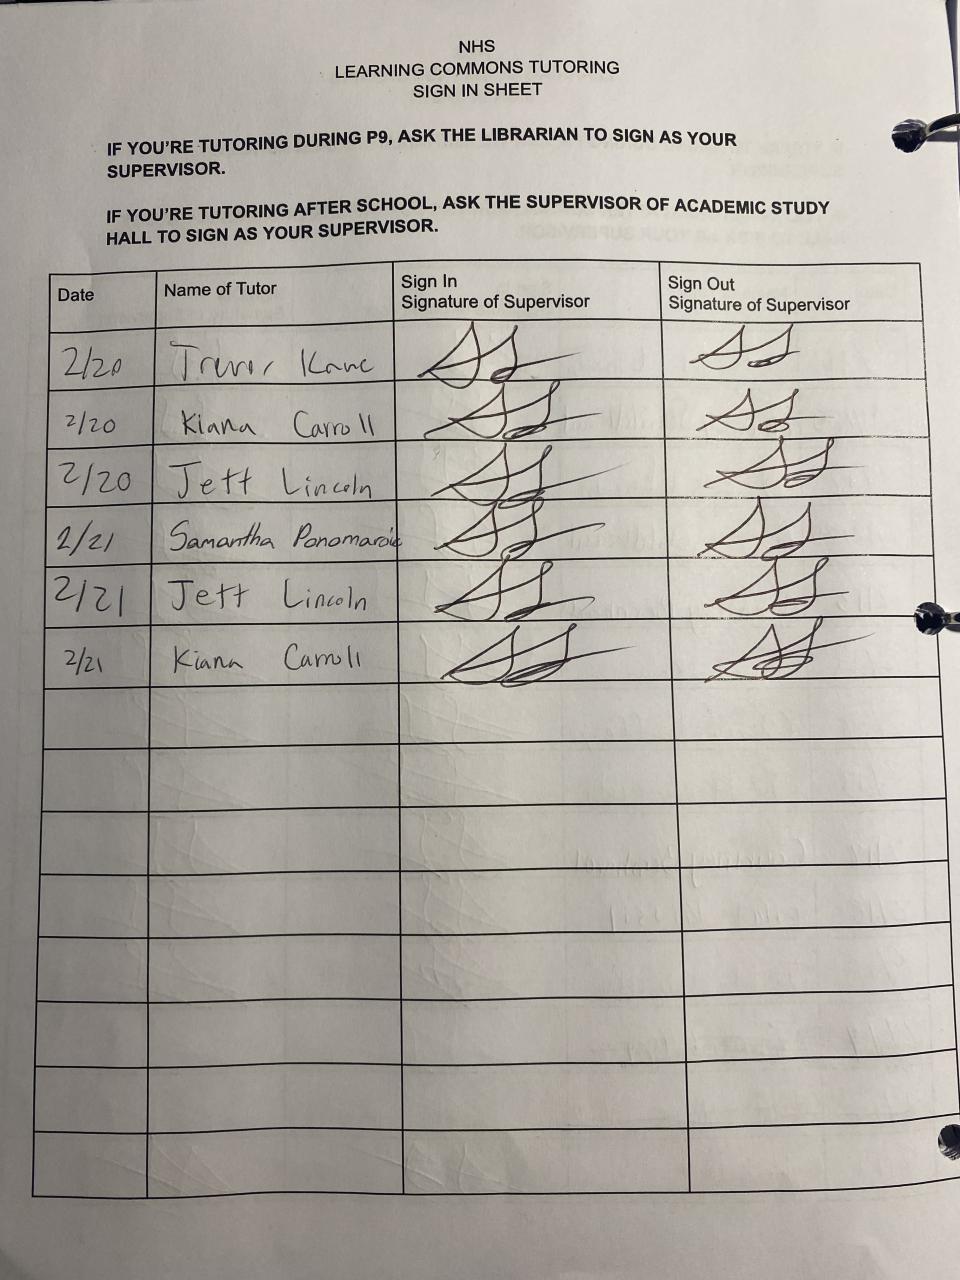 NHS
LEARNING COMMONS TUTORING
SIGN IN SHEET
IF YOU'RE TUTORING DURING P9, ASK THE LIBRARIAN TO SIGN AS YOUR
SUPERVISOR.
IF YOU'RE TUTORING AFTER SCHOOL, ASK THE SUPERVISOR OF ACADEMIC STUDY
HALL TO SIGN AS YOUR SUPERVISOR.
Date Name of Tutor Sign In Signature of Supervisor Sign Out Signature of Supervisor
2/20 Trevor Kane
2/20 Kiana Carroll
2/20 Jett Lincoln
2/21 Samantha
2/21 Jett Lincoln
2/21 Kiana Carroll